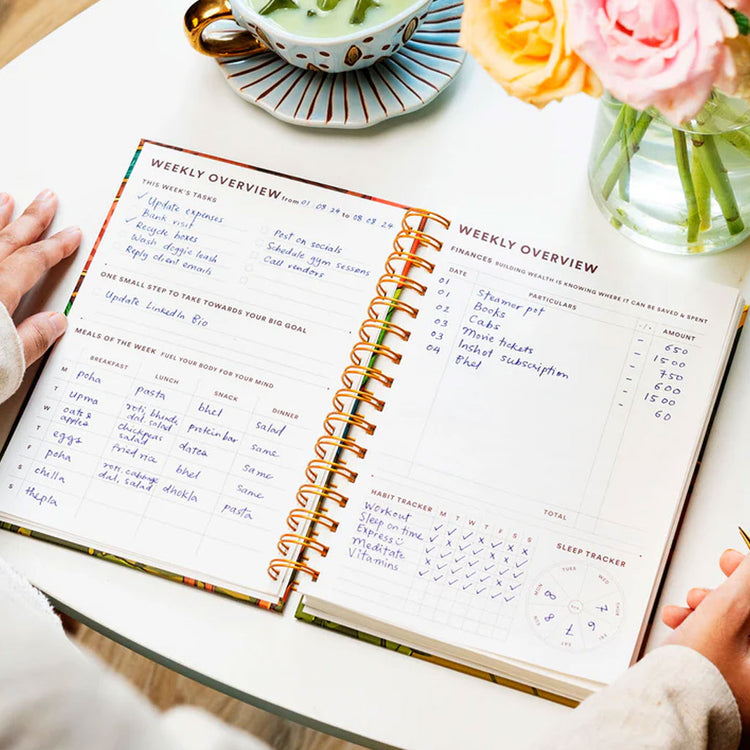 WEEKLY OVERVIEW from 01 08 24 to 08 08 24
THIS WEEK'S TASKS
✓ Update expenses
Bank visit
✓ Recycle boxes
Wash doggie leash
Reply client emails
Post on socials
Schedule gym sessons
Call vendors
ONE SMALL STEP TO TAKE TOWARDS YOUR BIG GOAL
Update LinkedIn Bio
MEALS OF THE WEEK FUEL YOUR BODY FOR YOUR MIND
BREAKFAST LUNCH SNACK DINNER
M poha pasta bhel salad
T upma roti, bhindi dal, salad protein bar same
W oats & apples chickpeas salad dates same
T eggs fried rice bhel same
F poha roti, cabbage dal, salad dhokla pasta
S chilla
S thepla
WEEKLY OVERVIEW
FINANCES BUILDING WEALTH IS KNOWING WHERE IT CAN BE SAVED & SPENT
DATE PARTICULARS -/+ AMOUNT
01 Steamer pot - 650
01 Books - 1500
02 Cabs - 750
03 Movie tickets - 600
03 Inshot subscription - 1500
04 Bhel - 60
TOTAL
HABIT TRACKER M T W T F S S
Workout
Sleep on time
Express
Meditate
Vitamins
SLEEP TRACKER
MON TUE WED THUR
8 7 6 7 8